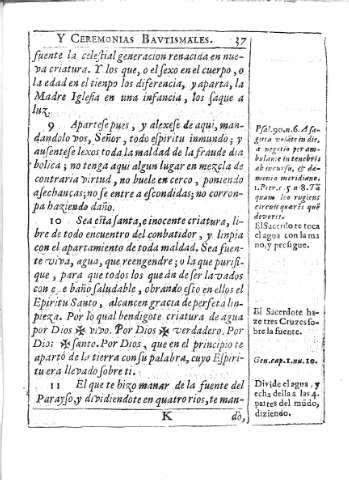 Y CEREMONIAS BAVTISMALES. 37
fuente la celestial generacion renacida en nue-
va criatura. Y los que, o el sexo en el cuerpo, o
la edad en el tienpo los diferencia, y aparta, la
Madre Iglesia en una infancia, los saque a
luz.
9 Apartese pues, y alexese de aqui, man-
dandolo vos, Señor, todo espiritu inmundo; y
ausentese lexos toda la maldad de la fraude dia
bolica; no tenga aqui algun lugar en mezcla de
contraria virtud, no buele en cerco, poniendo
asechancas; no se entre a escondidas; no corron-
pa haziendo daño.
10 Sea esta santa, e inocente criatura, li-
bre de todo encuentro del conbatidor, y linpia
con el apartamiento de toda maldad. Sea fuen-
te viva, agua, que reengendre; o la que purifi-
que, para que todos los que án de ser lavados
con e e baño saludable, obrando esto en ellos el
Espiritu Santo, alcancen gracia de perfeta lin-
pieza. Por lo qual bendigote criatura de agua
por Dios ✠ vivo. Por Dios ✠ verdadero. Por
Dios ✠ santo. Por Dios, que en el principio te
apartó de la tierra con su palabra, cuyo Espiri-
tu era llevado sobre ti.
11 El que te bizo manar de la fuente del
Parayso, y dividiendote en quatro rios, te man-
K dò,
Psal. 90. n. 6. A sa-
gita volâte in die,
a negotio per am-
bulante in tenebris
ab incursu, & de-
monio meridiano.
1. Petr. c. 5 n 8. Tã
quam leo rugiens
circuit quærês quē
devoret.
El Sacerdote toca
el agua con la ma
no, y prosigue.
El Sacerdote ha-
ze tres Cruzes so-
bre la fuente.
Gen. cap. 1. nu. 10.
Divide el agua, y
echa della a las 4.
partes del mūdo,
diziendo.